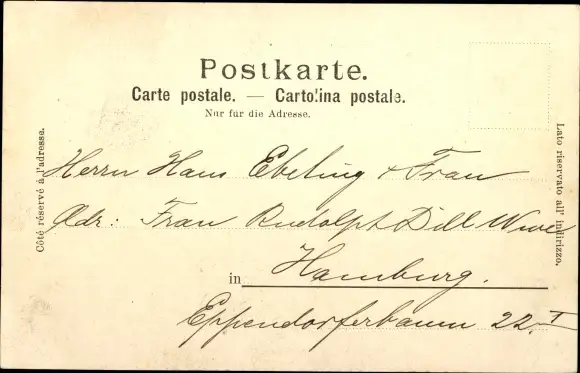 Postkarte.
Carte postale. — Cartolina postale.
Nur für die Adresse.
Côté réservé à l'adresse.
Lato riservato all' indirizzo.
Herrn Hans Ebeling + Frau
Adr: Frau Rudolph Dill Wwe
in Hamburg.
Eppendorferbaum 22 I